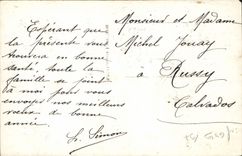 Espérant que
la présente vous
trouvera en bonne
santé, toute la
famille se joint
à moi pour vous
envoyer nos meilleurs
vœux de bonne
année.
L. Simon
Monsieur et Madame
Michel Jouay
à Russy
Calvados